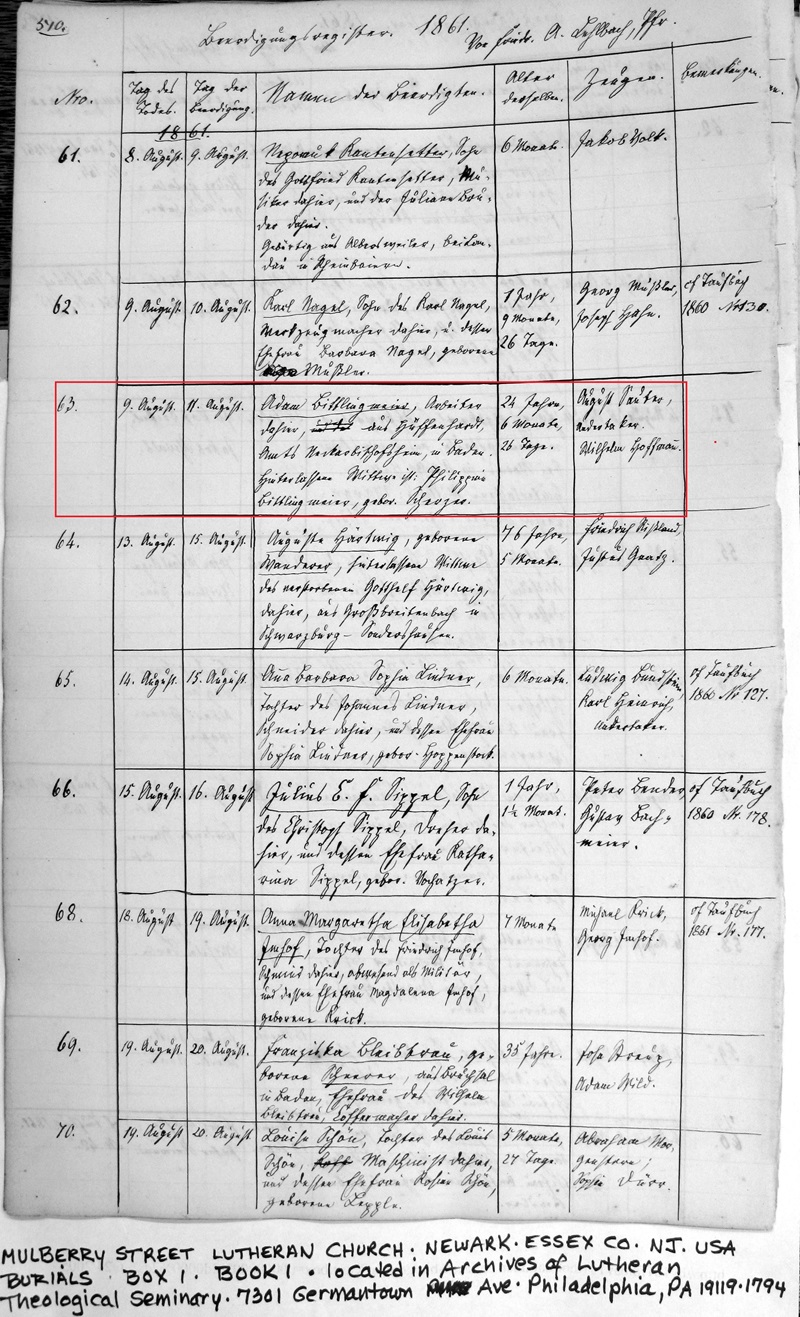 510.
Beerdigungsregister. 1861. Von Friedr. A. Lehlbach, Pfr.
Nro.
Tag des Todes.
Tag der Beerdigung.
Namen der Beerdigten.
Alter derselben.
Zeugen.
Bemerkungen.
1861.
61.
8. August.
9. August.
Nepomuk Rantensetter, Sohn
des Gottfried Rantensetter, Mu-
siker dahier, und der Juliane Bru-
der dahier.
Gebürtig aus Albersweiler, bei Lan-
dau in Rheinbaiern.
6 Monate.
Jakob Volk.
62.
9. August.
10. August.
Karl Nagel, Sohn des Karl Nagel,
Werkzeugmacher dahier, u. dessen
Ehefrau Barbara Nagel, geborene
Mußler.
1 Jahr,
9 Monate,
26 Tage.
Georg Mußler,
Joseph Hahn.
cf Taufbuch
1860 Nr 130.
63.
9. August.
11. August.
Adam Bittlingmeier, Arbeiter
dahier, aus Hüffenhardt.
Amts Neckarbischofsheim, in Baden.
Hinterlassene Wittwe ist: Philippine
Bittlingmeier, gebor. Scherzer.
24 Jahre,
6 Monate,
26 Tage.
August Sauter,
Undertaker.
Wilhelm Hoffmann.
64.
13. August.
15. August.
Auguste Härtwig, geborene
Wanderer, hinterlassene Wittwe
des verstorbenen Gotthelf Härtwig,
dahier, aus Großbreitenbach in
Schwarzburg-Sondershausen.
76 Jahre,
5 Monate.
Friedrich
Justus Graatz.
65.
14. August.
15. August.
Anna Barbara Sophia Lindner,
Tochter des Johannes Lindner,
Schneider dahier, und dessen Ehefrau
Sophia Lindner, gebor. Hoppenstock.
6 Monate.
Ludwig Bundstein,
Karl Heinrich,
Undertaker.
cf Taufbuch
1860 Nr 127.
66.
15. August.
16. August
Julius C. F. Sippel, Sohn
des Christoph Sippel, Dreher da-
hier, und dessen Ehefrau Katha-
rina Sippel, gebor. Vochatzer.
1 Jahr,
1½ Monat.
Peter Bender,
Gustav Bach-
meier.
cf Taufbuch
1860 Nr. 178.
68.
18. August
19. August.
Anna Margaretha Elisabetha
Imhof, Tochter des Friedrich Imhof,
Schmied dahier, abwesend als Militär,
und dessen Ehefrau Magdalena Imhof,
geborene Krick.
7 Monate
Michael Krick,
Georg Imhof.
cf Taufbuch
1861 Nr. 177.
69.
19. August.
20. August.
Franziska Bleibtreu, ge-
borene Scheerer, aus Bruchsal
in Baden, Ehefrau des Wilhelm
Bleibtreu, Koffermacher dahier.
35 Jahre.
Kreuz,
Adam Wild.
70.
19. August
20. August
Louise Schön, Tochter des Louis
Schön, Maschinist dahier,
und dessen Ehefrau Rosine Schön,
geborene Lepple.
5 Monate,
27 Tage.
Abraham Mor-
genstern,
Sophie Dürr.
MULBERRY STREET LUTHERAN CHURCH. NEWARK. ESSEX CO. NJ. USA
BURIALS BOX 1. BOOK 1 • located in Archives of Lutheran
Theological Seminary. 7301 Germantown Ave. Philadelphia, PA 19119.1794